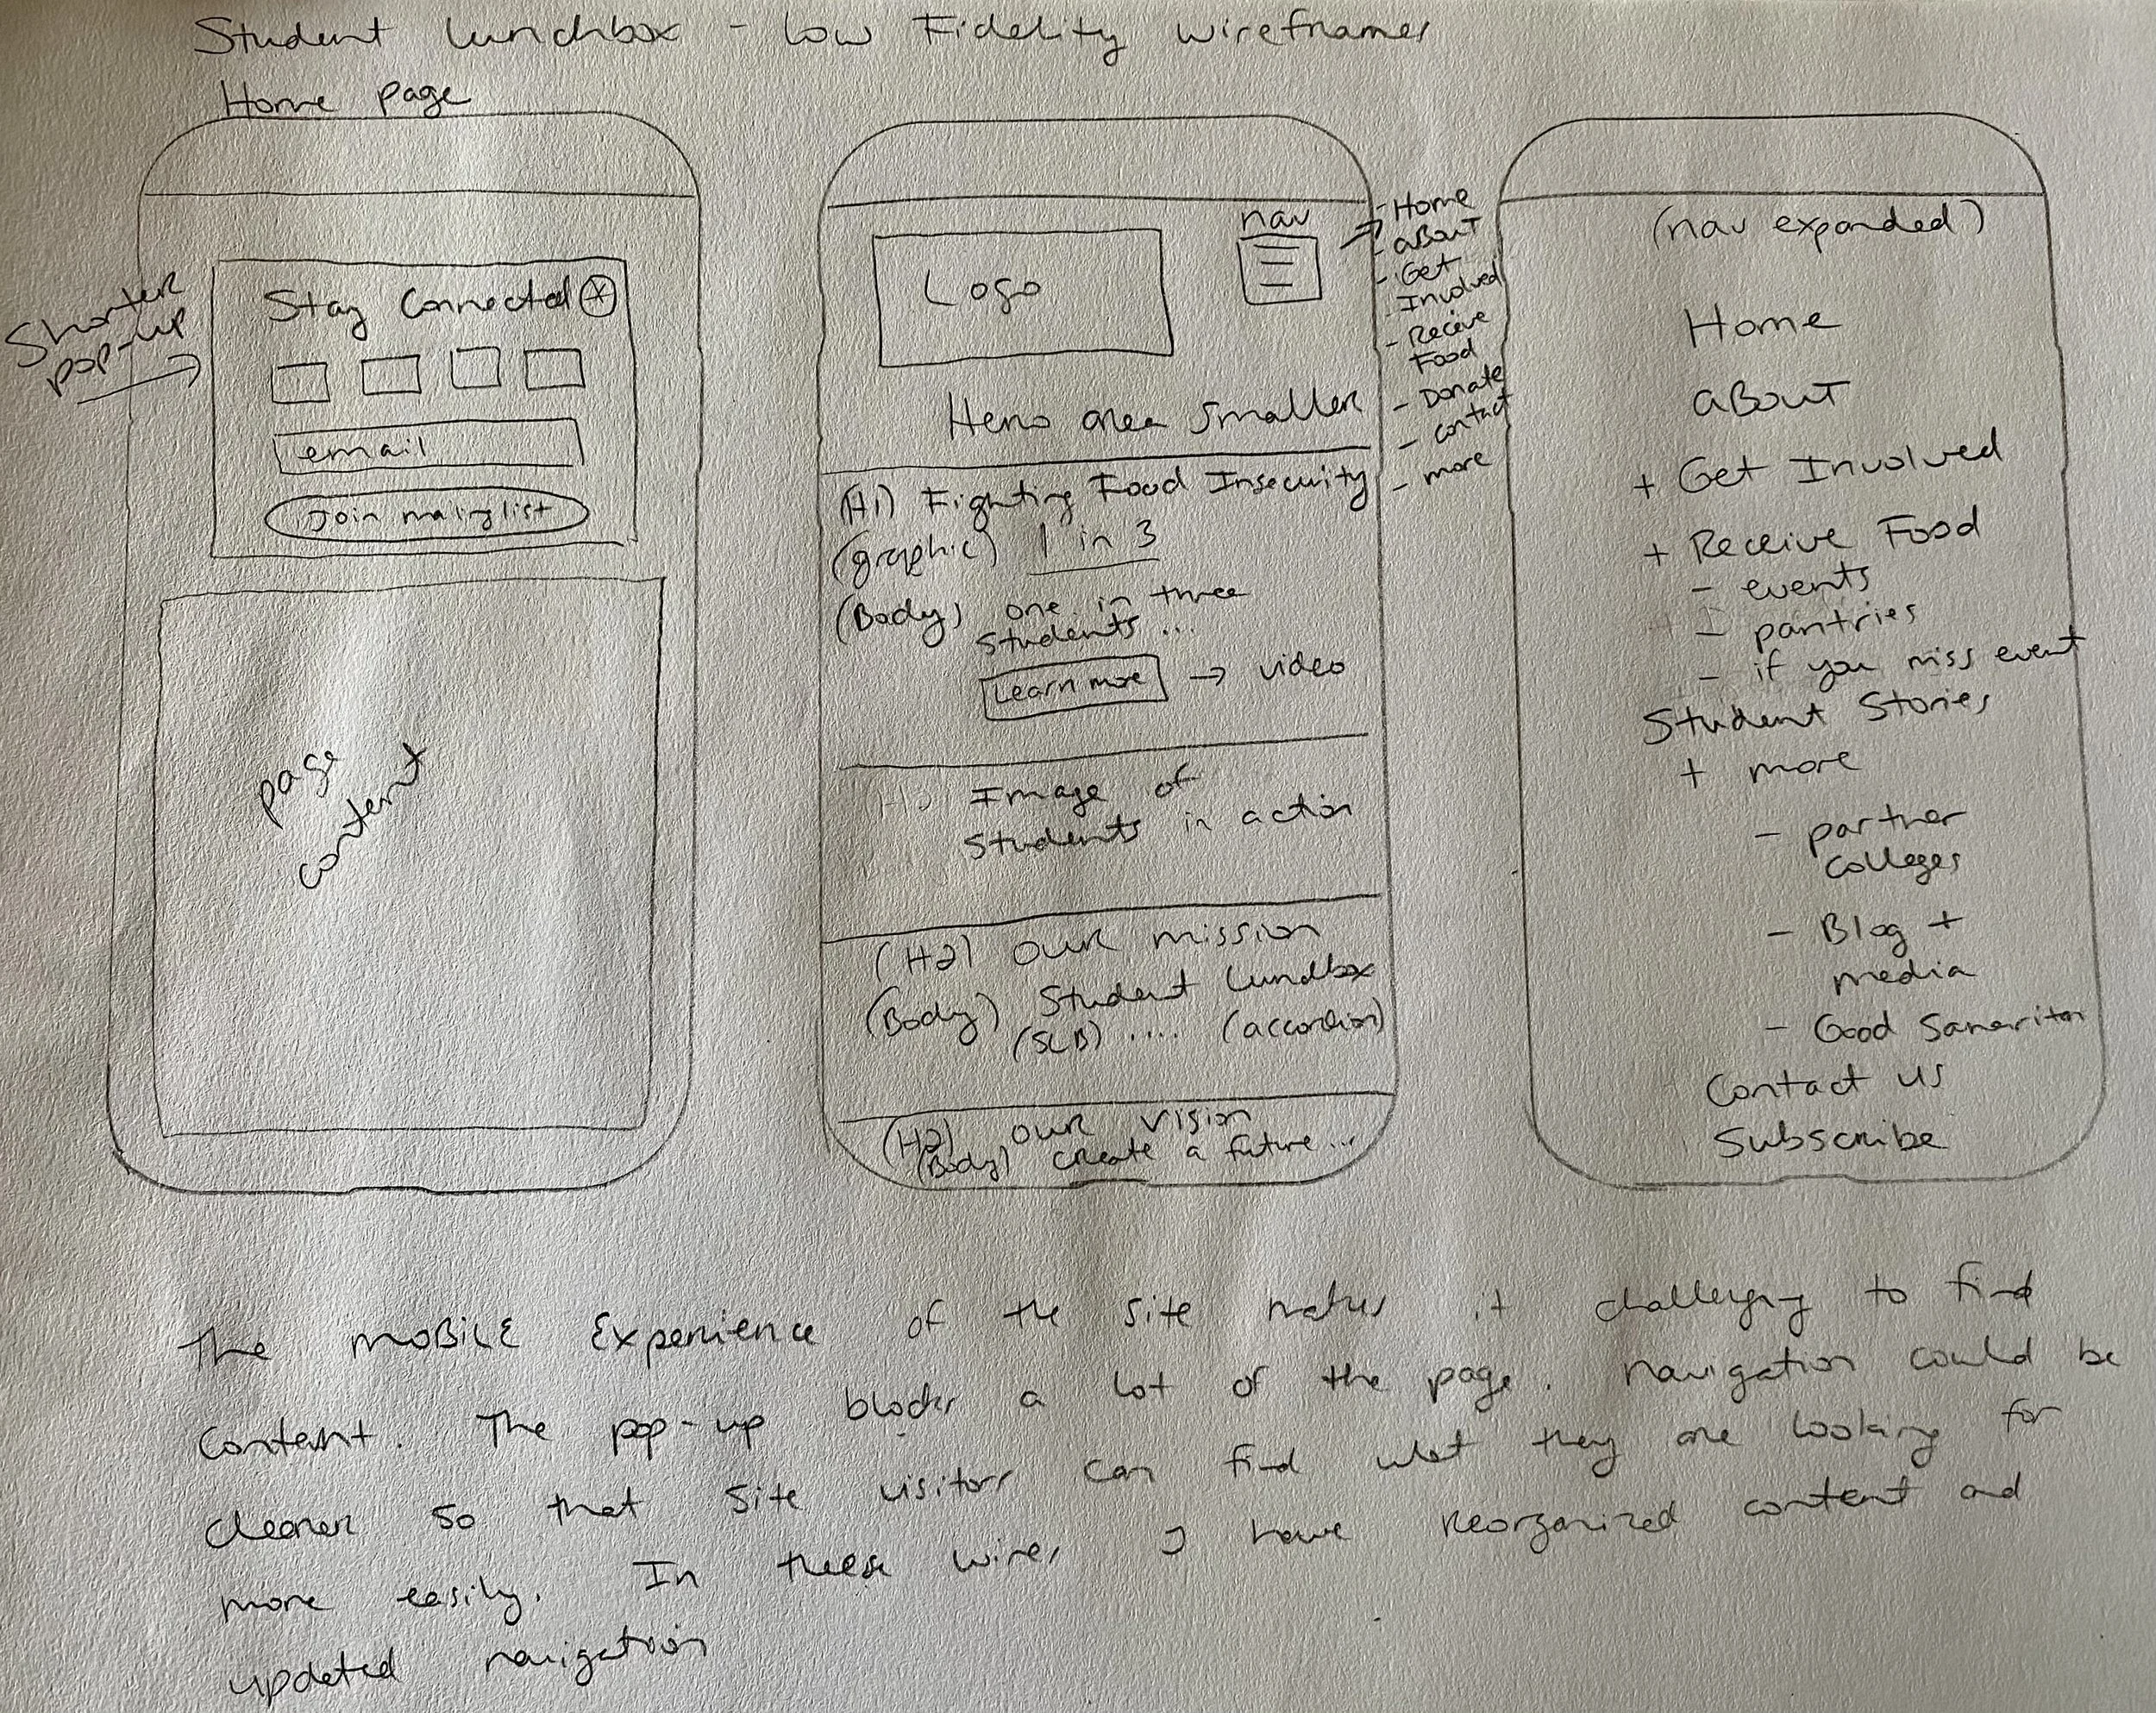 Student Lunchbox - Low Fidelity Wireframes
Home page
Shorter
pop-up
Stay Connected X
email
Join mailing list
page
content
nav
Logo
Hero area smaller
(H1) Fighting Food Insecurity
(graphic) 1 in 3
(Body) one in three
students ...
Learn more → video
Image of
students in action
(H2) Our mission
(Body) Student Lunchbox
(SLB) .... (accordion)
(H2) Our vision
(Body) create a future ...
- Home
- About
- Get
Involved
- Receive
Food
- Donate
- contact
- more
(nav expanded)
Home
About
+ Get Involved
+ Receive Food
- events
- pantries
- if you miss event
Student Stories
+ more
- partner
colleges
- Blog +
media
- Good Samaritan
Contact us
Subscribe
The mobile experience of the site makes it challenging to find
content. The pop-up blocks a lot of the page. Navigation could be
cleaner so that site visitors can find what they are looking for
more easily. In these wires I have reorganized content and
updated navigation